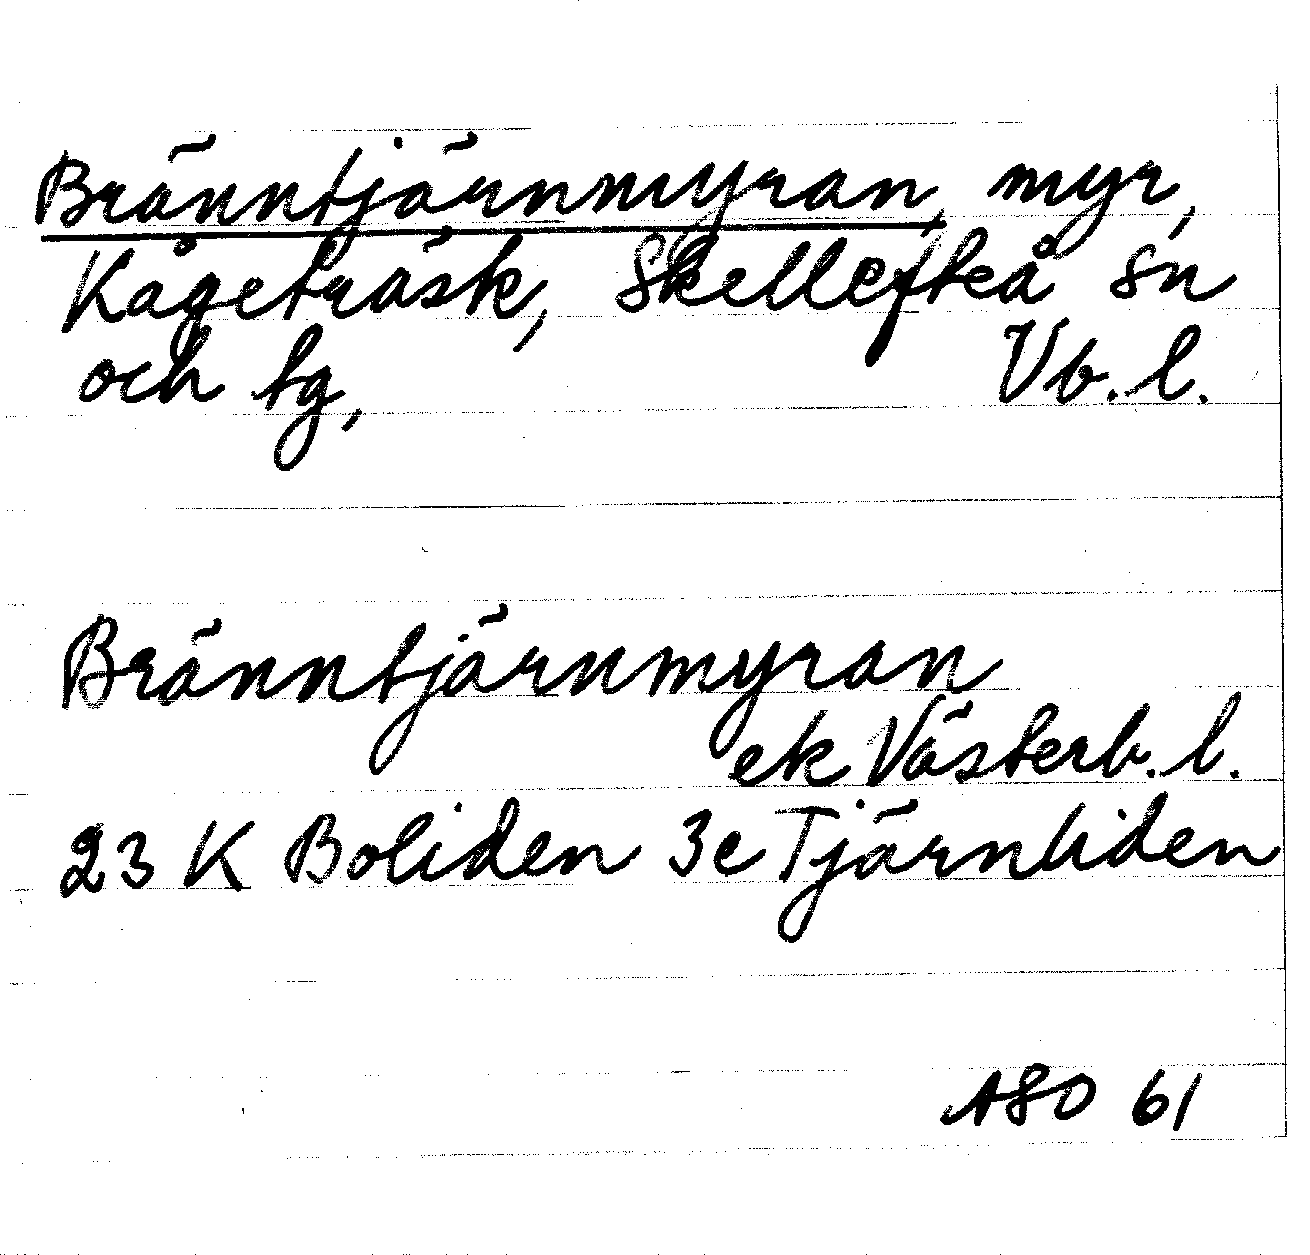 Bränntjärnmyran, myr,
Kågeträsk, Skellefteå sn
och tg, Vb. l.
Bränntjärnmyran
ek Västerb. l.
23 K Boliden 3e Tjärnliden
ASO 61